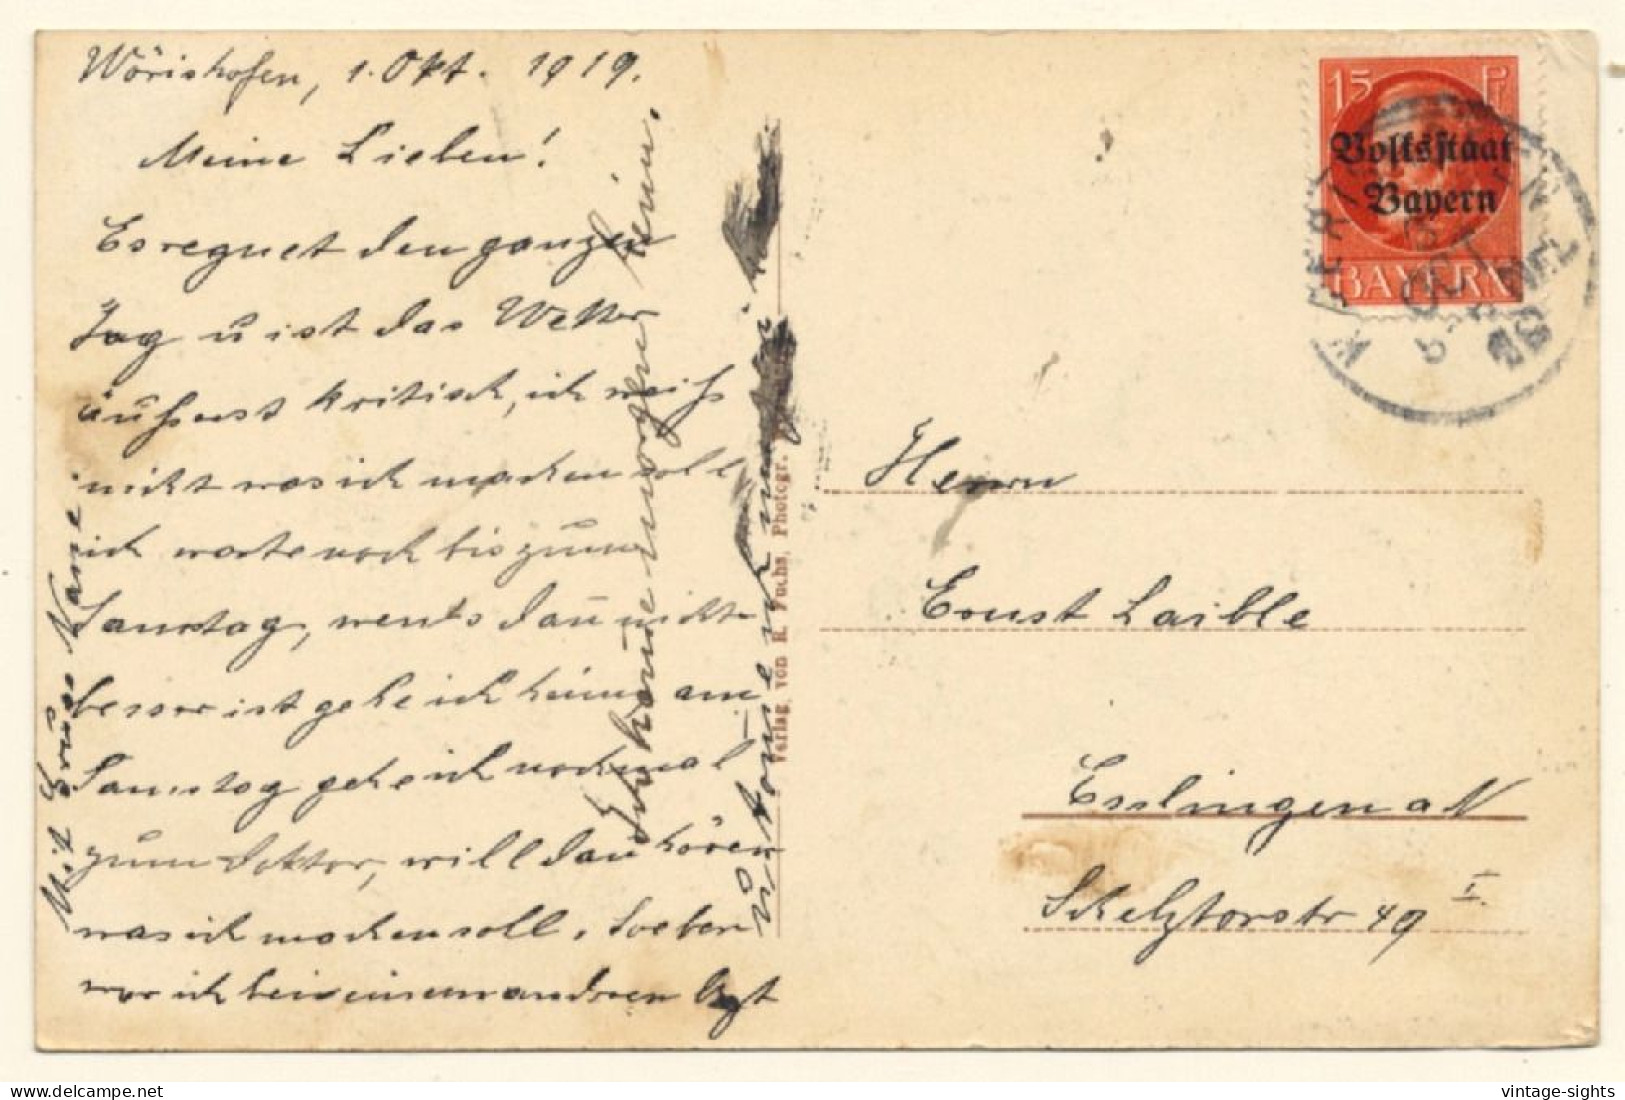 Wörishofen, 1. Okt. 1919.
Meine Lieben!
Es regnet den ganzen
Tag u ist das Wetter
äußerst kritisch, ich weiß
nicht was ich machen soll,
ich warte noch bis zum
Samstag, wenns dañ nicht
besser ist gehe ich heim, am
Samstag gehe ich nochmal
zum Doktor, will dañ hören
was ich machen soll. Soeben
war ich bei einem andren Arzt
Ich komme morgen heim.
Mit Gruss
Verlag von H. Fuchs, Photogr.
15 Pf
Volksstaat
Bayern
BAYERN
Herrn
Ernst Laible
Esslingen a N
Schelztorstr 49 I.
vintage-sights